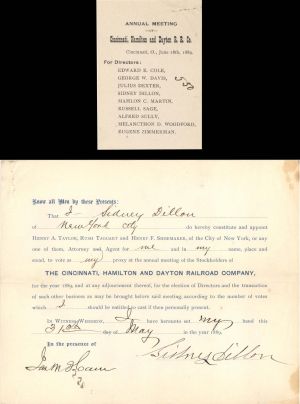 ANNUAL MEETING
OF
Cincinnati, Hamilton and Dayton R. R. Co.
Cincinnati, O., June 18th, 1889.
For Directors:
EDWARD R. COLE,
GEORGE W. DAVIS,
JULIUS DEXTER,
SIDNEY DILLON,
HAMLON C. MARTIN,
RUSSELL SAGE,
ALFRED SULLY,
MELANCTHON D. WOODFORD,
EUGENE ZIMMERMAN.
550
Know all Men by these Presents:
That I Sidney Dillon
of New York City do hereby constitute and appoint
HENRY A. TAYLOR, RUSH TAGGART and HENRY F. SHOEMAKER, of the City of New York, or any
one of them, Attorney and Agent for me and in my name, place and
stead, to vote as my proxy at the annual meeting of the Stockholders of
THE CINCINNATI, HAMILTON AND DAYTON RAILROAD COMPANY,
for the year 1889, and at any adjournment thereof, for the election of Directors and the transaction
of such other business as may be brought before said meeting according to the number of votes
which I should be entitled to cast if then personally present.
IN WITNESS WHEREOF, I have hereunto set my hand this
31st day of May in the year 1889.
In the presence of
Sidney Dillon